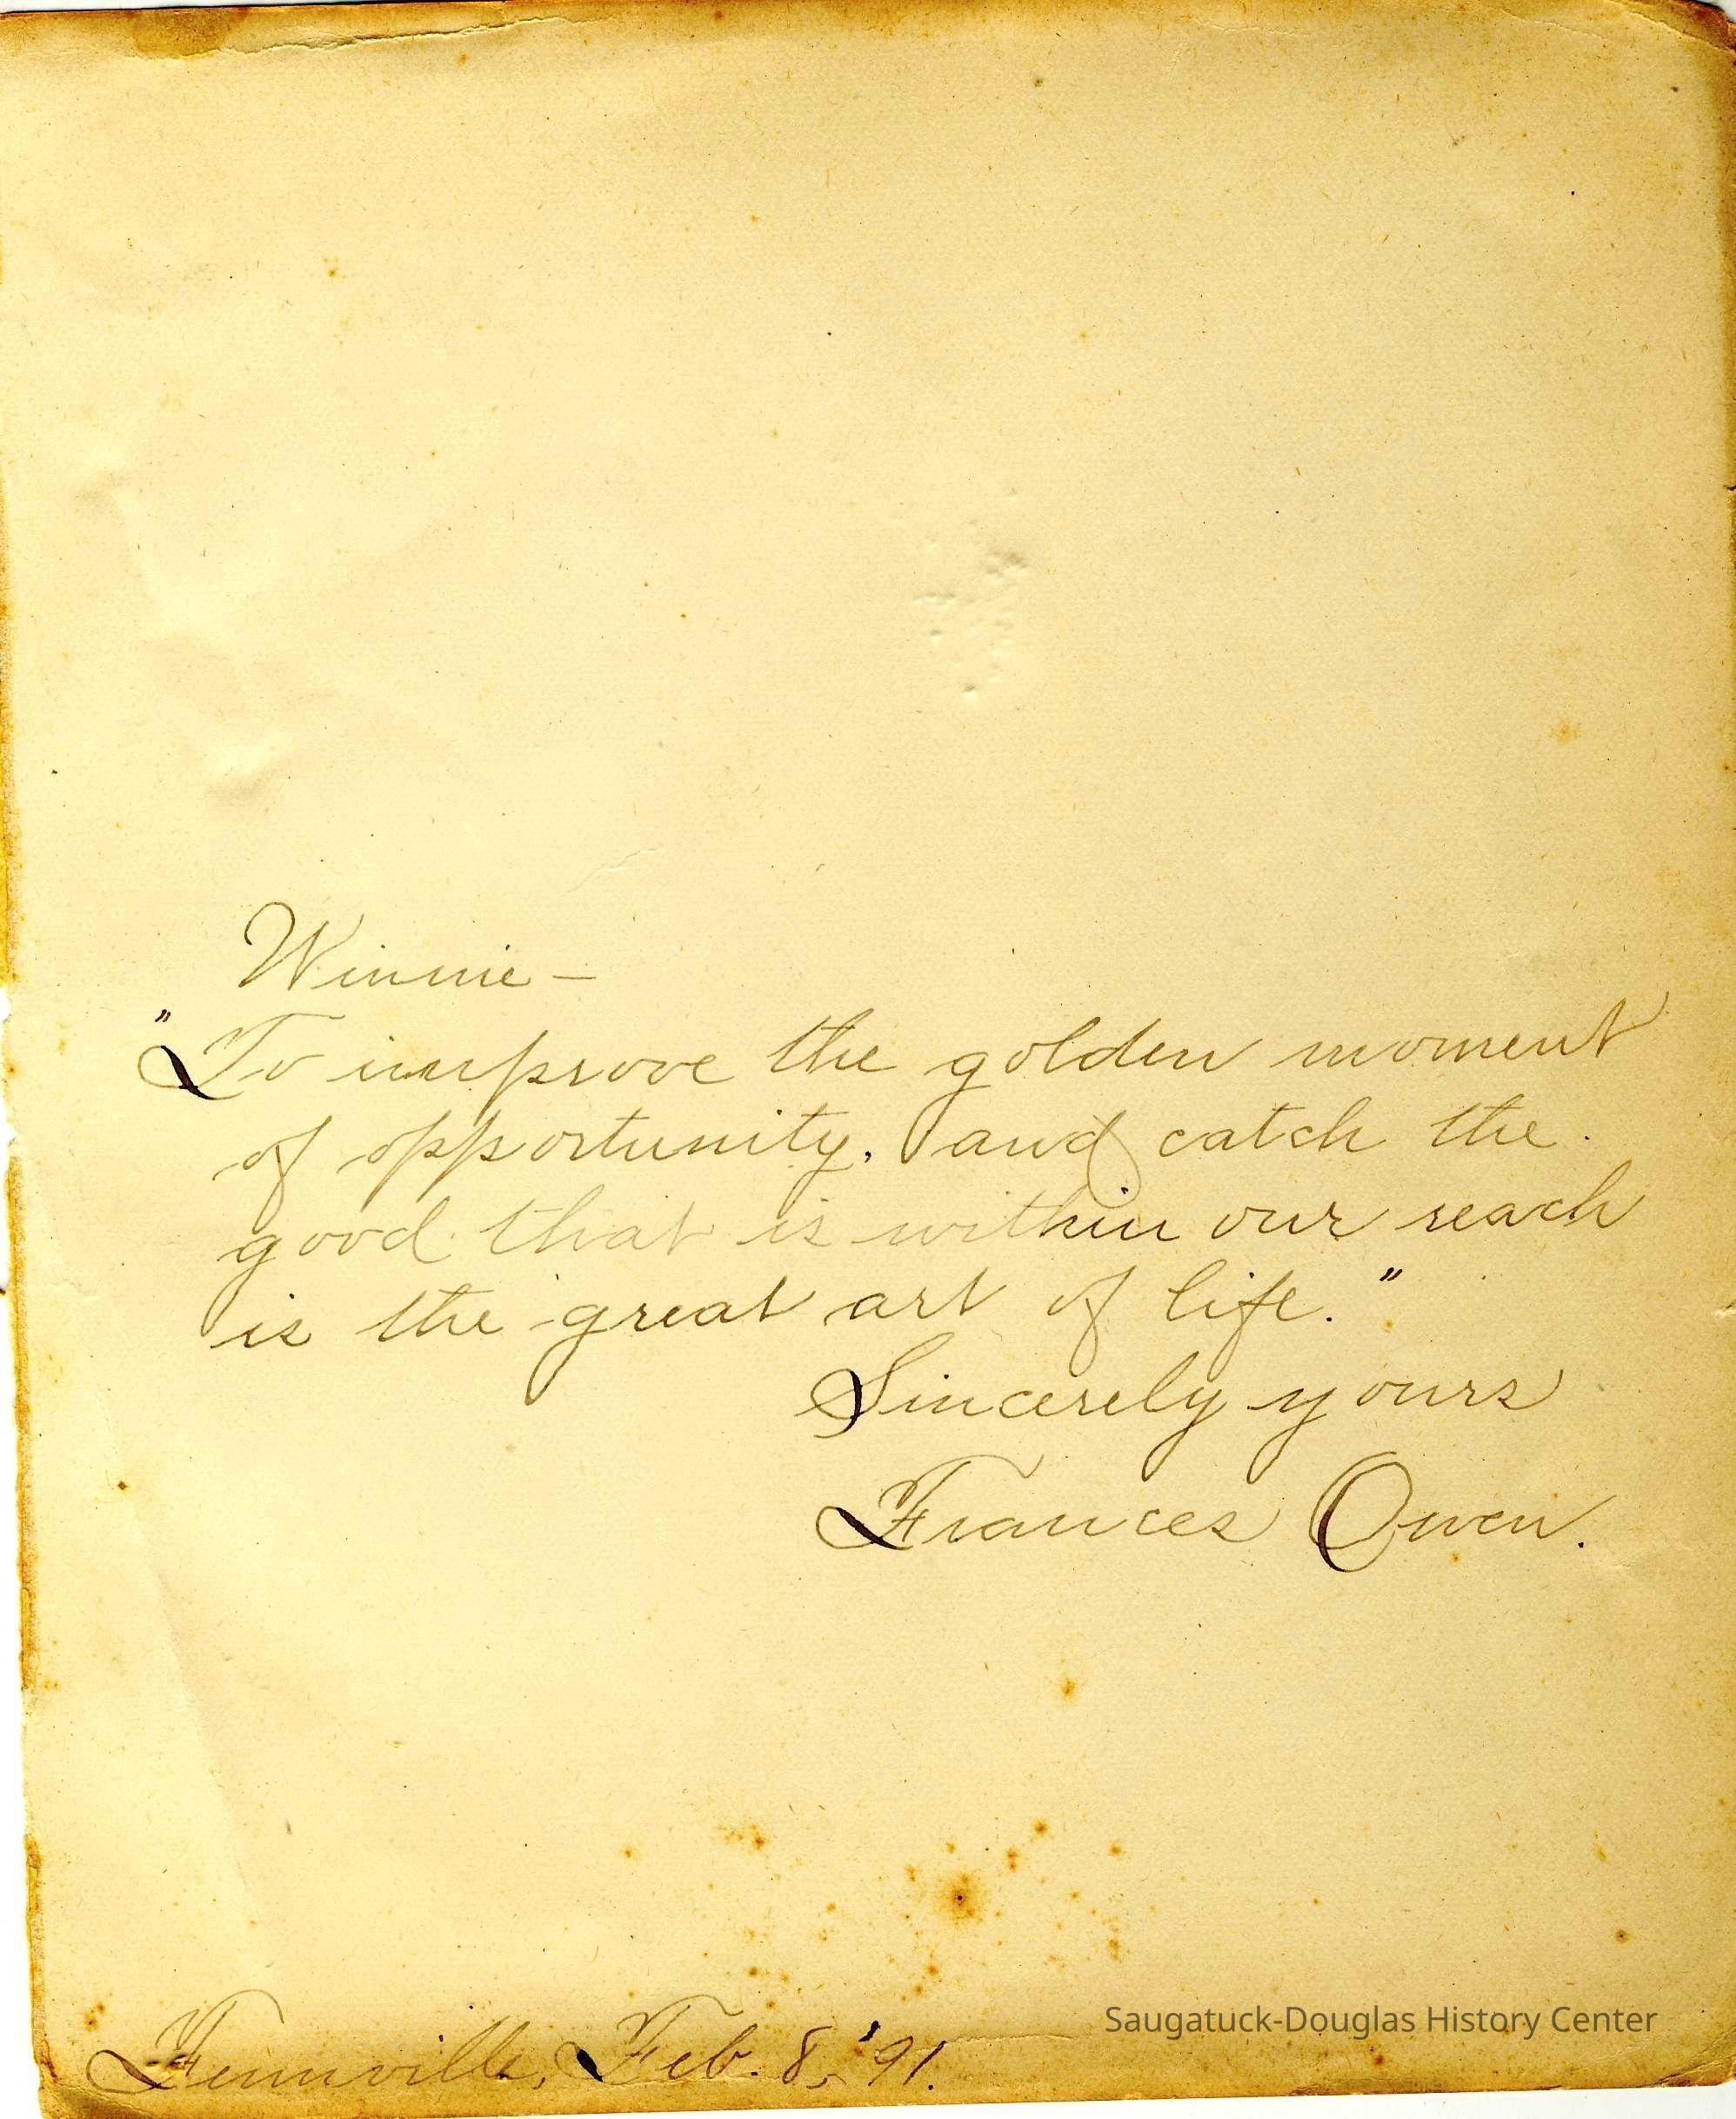 Winnie –
"To improve the golden moment
of opportunity, and catch the
good that is within our reach
is the great art of life."
Sincerely yours
Frances Owen.
Fennville, Feb. 8, '91.
Saugatuck-Douglas History Center